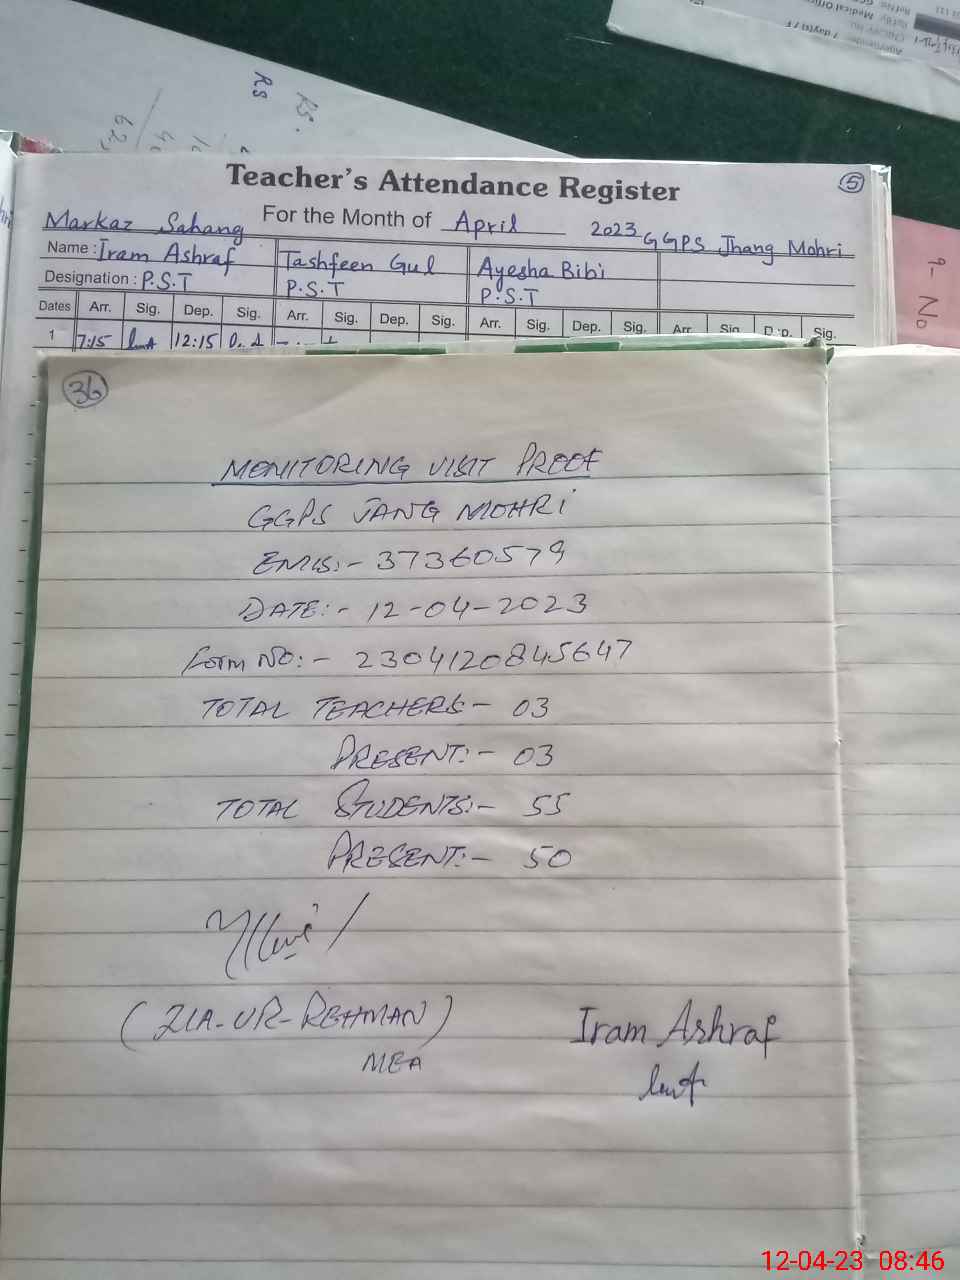 Medical Officer
7 day(s)
R.S
RS.
62
Teacher's Attendance Register
5
For the Month of April 2023
Markaz Sahang
GGPS Jhang Mohri
Name : Iram Ashraf Tashfeen Gul Ayesha Bibi
Designation : P.S.T P.S.T P.S.T
Dates Arr. Sig. Dep. Sig. Arr. Sig. Dep. Sig. Arr. Sig. Dep. Sig. Arr. Sig. Dep. Sig.
1 7:15 12:15
9- No
36
MONITORING VISIT PROOF
GGPS JANG MOHRi
EMIS:- 37360579
DATE:- 12-04-2023
Form NO:- 2304120845647
TOTAL TEACHERS- 03
PRESENT:- 03
TOTAL STUDENTS:- 55
PRESENT:- 50
(ZIA-UR-REHMAN)
MEA
Iram Ashraf
12-04-23 08:46